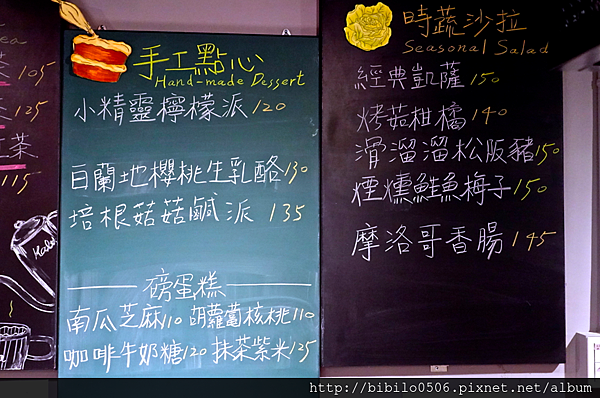 105
125
茶
115
手工點心
Hand-made Dessert
小精靈檸檬派 120
白蘭地櫻桃生乳酪 130
培根菇菇鹹派 135
磅蛋糕
南瓜芝麻 110 胡蘿蔔核桃 110
咖啡牛奶糖 120 抹茶紫米 135
時蔬沙拉
Seasonal Salad
經典凱薩 150
烤菇柑橘 140
滑溜溜松阪豬 150
煙燻鮭魚梅子 150
摩洛哥香腸 145
http://bibilo0506.pixnet.net/album